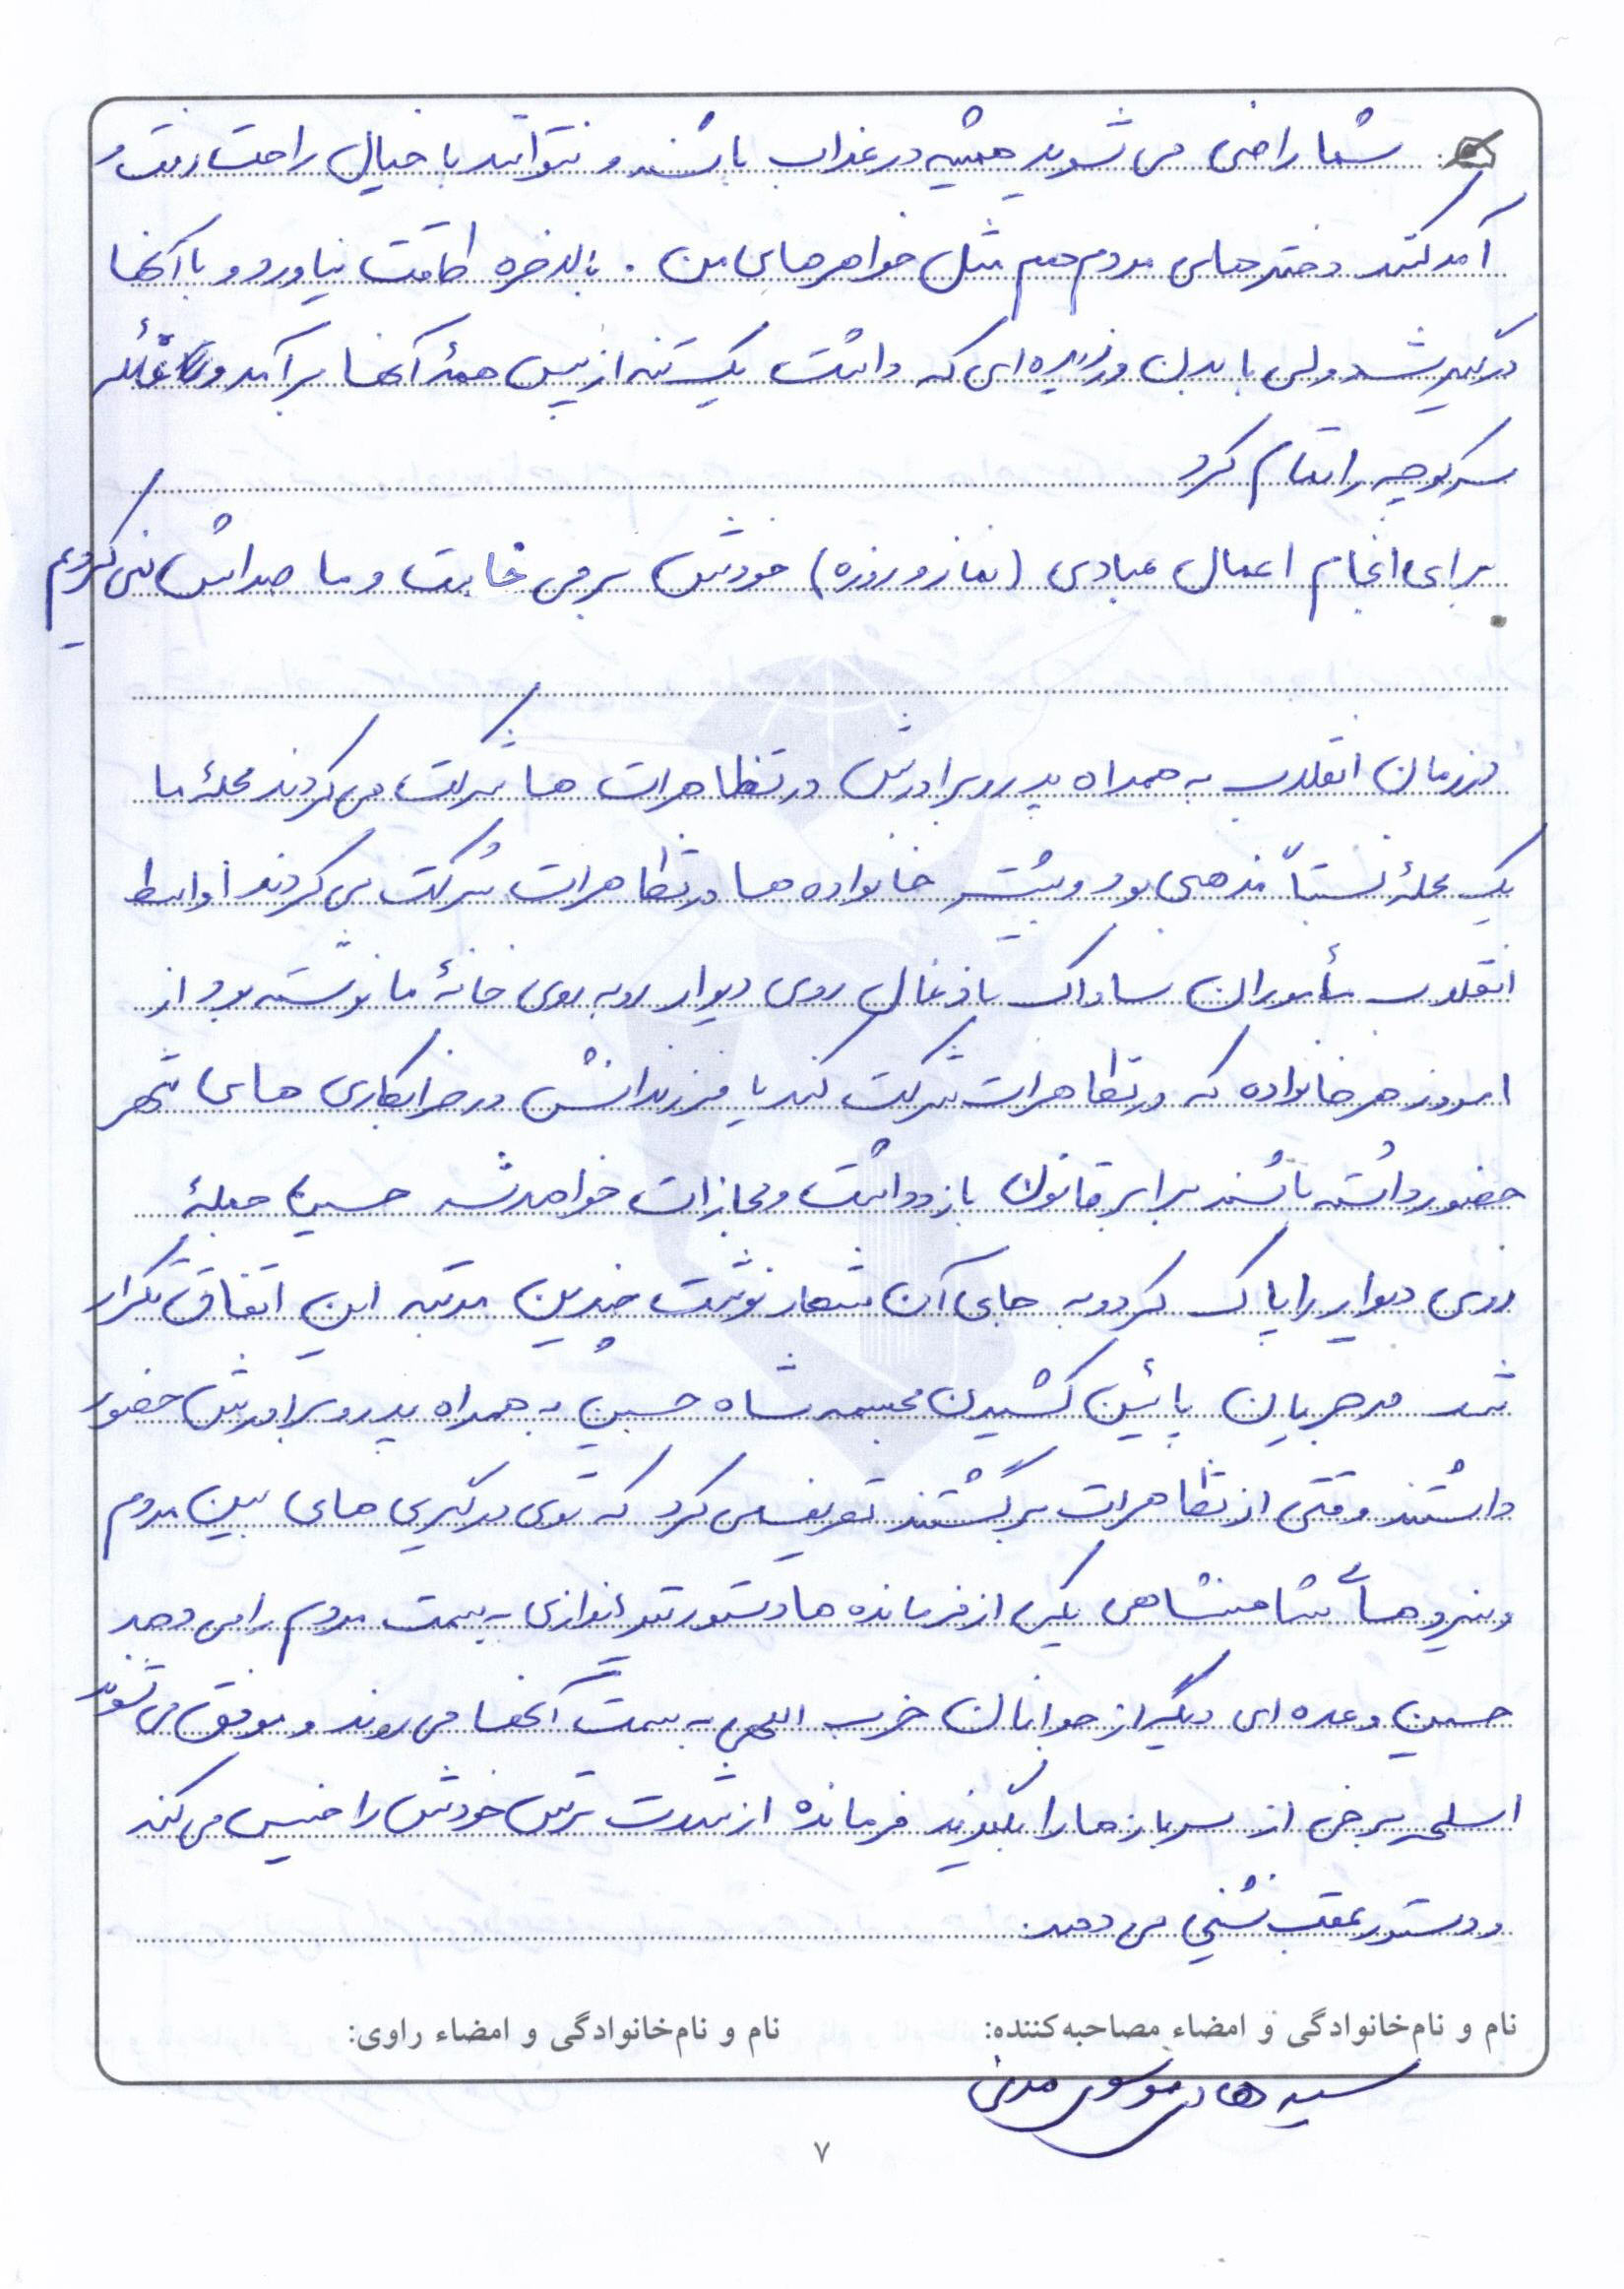 شما راضی می شوید همیشه در عذاب باشند و نتوانند با خیال راحت رفت و
آمد کنند دخترهای مردم هم مثل خواهرهای من . بالاخره طاقت نیاورد و با آنها
درگیر شد ولی با بدن ورزیده ای که داشت یک تنه از پس همهٔ آنها برآمد و غائله
سر کوچه را تمام کرد
برای انجام اعمال عبادی (نماز و روزه) خودش برمی خاست و ما صدایش نمی کردیم
در زمان انقلاب به همراه پدر و برادرش در تظاهرات ها شرکت می کردند محلهٔ ما
یک محلهٔ نسبتاً مذهبی بود و بیشتر خانواده ها در تظاهرات شرکت می کردند اواسط
انقلاب مأموران ساواک با ذغال روی دیوار روبه روی خانهٔ ما نوشته بود از
امروز هر خانواده که در تظاهرات شرکت کند یا فرزندانش در خرابکاری های شهر
حضور داشته باشند برابر قانون بازداشت و مجازات خواهد شد حسین جملهٔ
روی دیوار را پاک کرد و به جای آن شعار نوشت چندین مرتبه این اتفاق تکرار
شد در جریان پائین کشیدن مجسمه شاه حسین به همراه پدر و برادرش حضور
داشتند وقتی از تظاهرات برگشتند تعریف می کرد که توی درگیری های بین مردم
و نیروهای شاهنشاهی یکی از فرمانده ها دستور تیراندازی به سمت مردم را می دهد
حسین و عده ای دیگر از جوانان حزب اللهی به سمت آنها می روند و موفق می شوند
اسلحه برخی از سربازها را بگیرند فرمانده از شدت ترس خودش را خیس می کند
و دستور عقب نشینی می دهد.
نام و نام‌خانوادگی و امضاء مصاحبه‌کننده: نام و نام‌خانوادگی و امضاء راوی:
سید هادی موسوی مدنی
۷